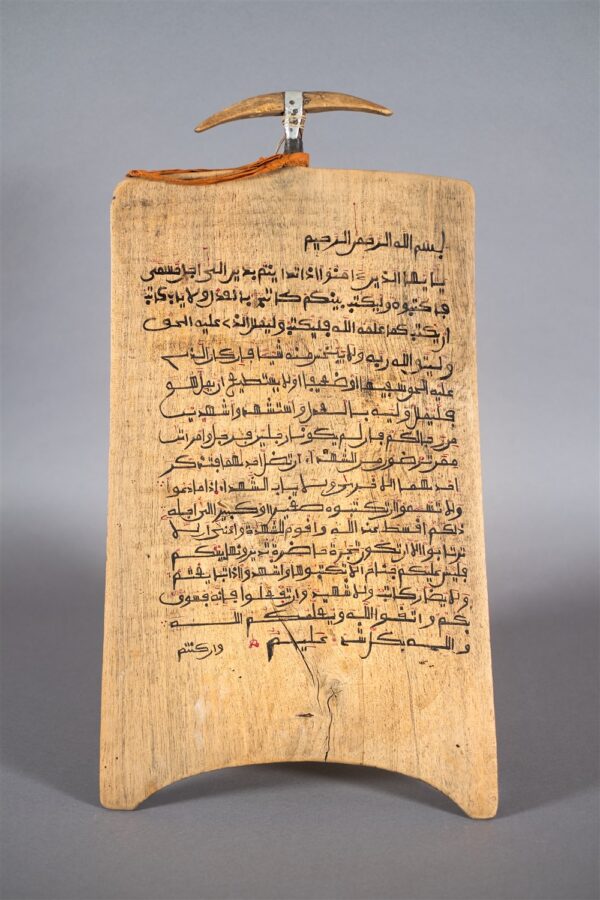 بسم الله الرحمن الرحيم
يايها الذين ءامنوا اذا تداينتم بدين الى اجل مسمى
فاكتبوه وليكتب بينكم كاتب بالعدل ولا ياب كاتب
ان يكتب كما علمه الله فليكتب وليملل الذى عليه الحق
وليتق الله ربه ولا يبخس منه شيا فان كان الذى
عليه الحق سفيها او ضعيفا او لا يستطيع ان يمل هو
فليملل وليه بالعدل واستشهدوا شهيدين
من رجالكم فان لم يكونا رجلين فرجل وامراتن
ممن ترضون من الشهداء ان تضل احديهما فتذكر
احديهما الاخرى ولا ياب الشهداء اذا ما دعوا
ولا تسموا ان تكتبوه صغيرا او كبيرا الى اجله
ذلكم اقسط عند الله واقوم للشهدة وادنى الا
ترتابوا الا ان تكون تجرة حاضرة تديرونها بينكم
فليس عليكم جناح الا تكتبوها واشهدوا اذا تبايعتم
ولا يضار كاتب ولا شهيد وان تفعلوا فانه فسوق
بكم واتقوا الله ويعلمكم الله
والله بكل شىء عليم وان كنتم